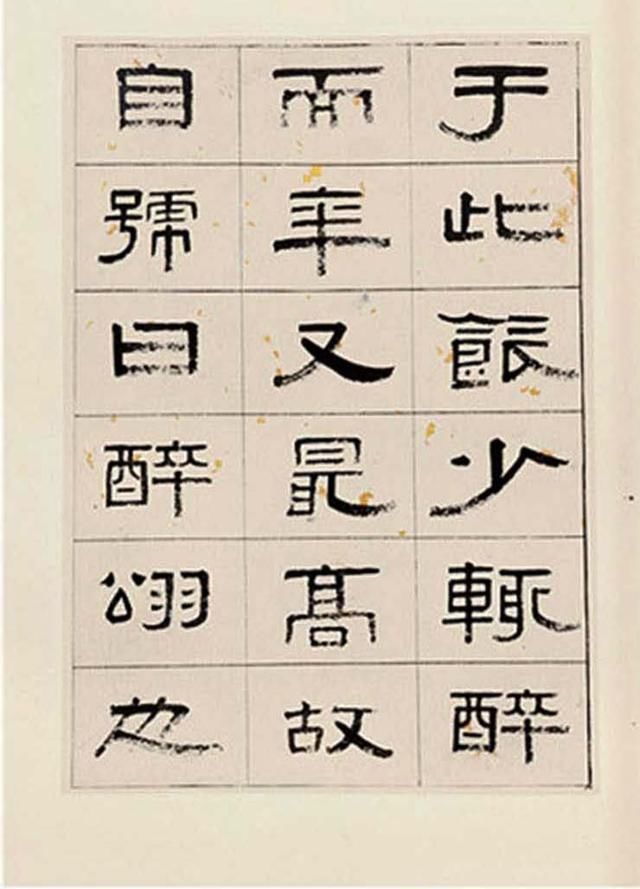 于此飲少輒醉
而年又最高故
自號曰醉翁也